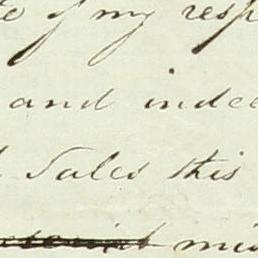 of my resp
and indee
Sales this
mis